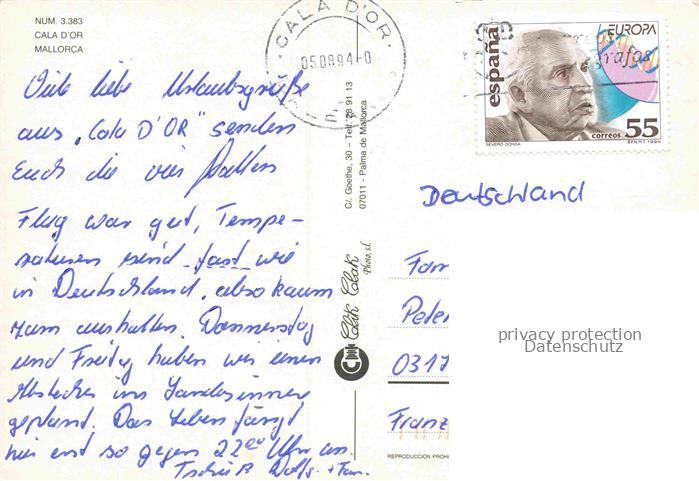 NUM. 3.383
CALA D'OR
MALLORCA
CALA D'OR
05.08.94-0
Viele liebe Urlaubsgrüße
aus „Cala D'OR" senden
Euch die vier
Flug war gut, Tempe-
raturen sind fast wie
in Deutschland, also kaum
zum aushalten. Donnerstag
und Freitag haben wir einen
Abstecher ins Landesinnere
geplant. Das Leben fängt
hier erst so gegen 22.00 Uhr an.
Tschüß Wolfg. + Fam.
C/. Goethe, 30 – Tel. 28 91 13
07011 - Palma de Mallorca
Clik Clak
Photo, s.l.
españa
EUROPA
correos 55
SEVERO OCHOA
F.N.M.T. 1994
Deutschland
Fam
Peter
0317
Franz
privacy protection
Datenschutz
REPRODUCCION PROHI